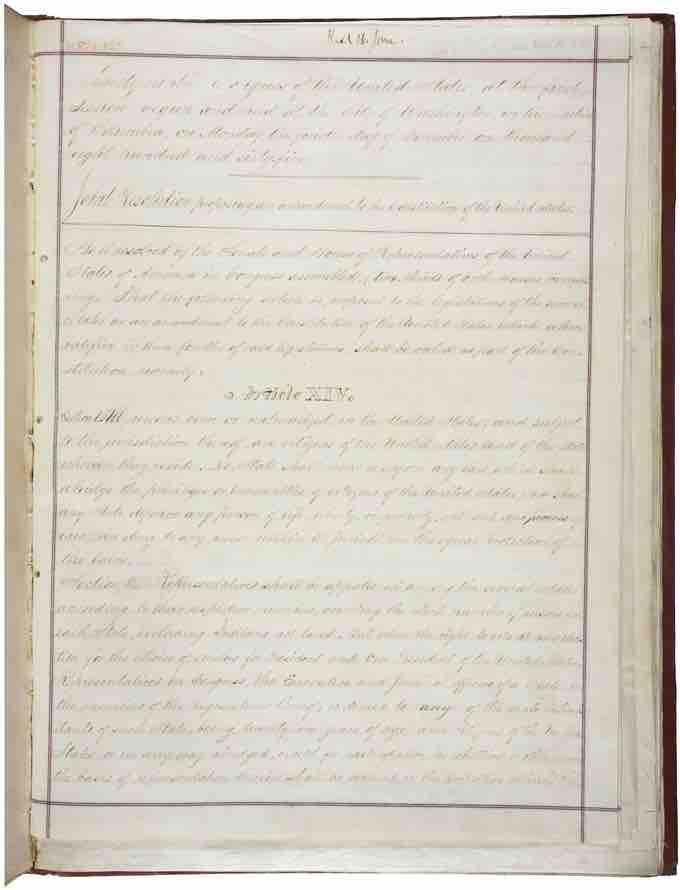 Congress of the United States, at the first
Session, begun and held at the City of Washington, in the
of Columbia, on Monday the fourth day of December, one thousand
eight hundred and sixty-five
Joint Resolution proposing an amendment to the Constitution of the United States.
Be it resolved by the Senate and House of Representatives of the United
States of America in Congress assembled, (two thirds of both Houses
That the following article be proposed to the legislatures of the several
States as an amendment to the Constitution of the United States, which, when
ratified by three fourths of said legislatures, shall be valid as part of the Con-
stitution, namely:
Article XIV.
Section 1. All persons born or naturalized in the United States, and subject
to the jurisdiction thereof, are citizens of the United States and of the State
wherein they reside. No State shall make or enforce any law which shall
abridge the privileges or immunities of citizens of the United States; nor shall
any State deprive any person of life, liberty, or property, without due process
nor deny to any person within its jurisdiction the equal protection of
the laws.
Section 2. Representatives shall be apportioned among the several States
according to their respective numbers, counting the whole number of persons in
each State, excluding Indians not taxed. But when the right to vote at any elec-
tion for the choice of electors for President and Vice President of the United States,
Representatives in Congress, the Executive and Judicial officers of a State, or
the members of the Legislature thereof, is denied to any of the male inhabi-
tants of such State, being twenty-one years of age, and citizens of the United
States, or in any way abridged, except for participation in rebellion or other
the basis of representation therein shall be reduced in the proportion which the